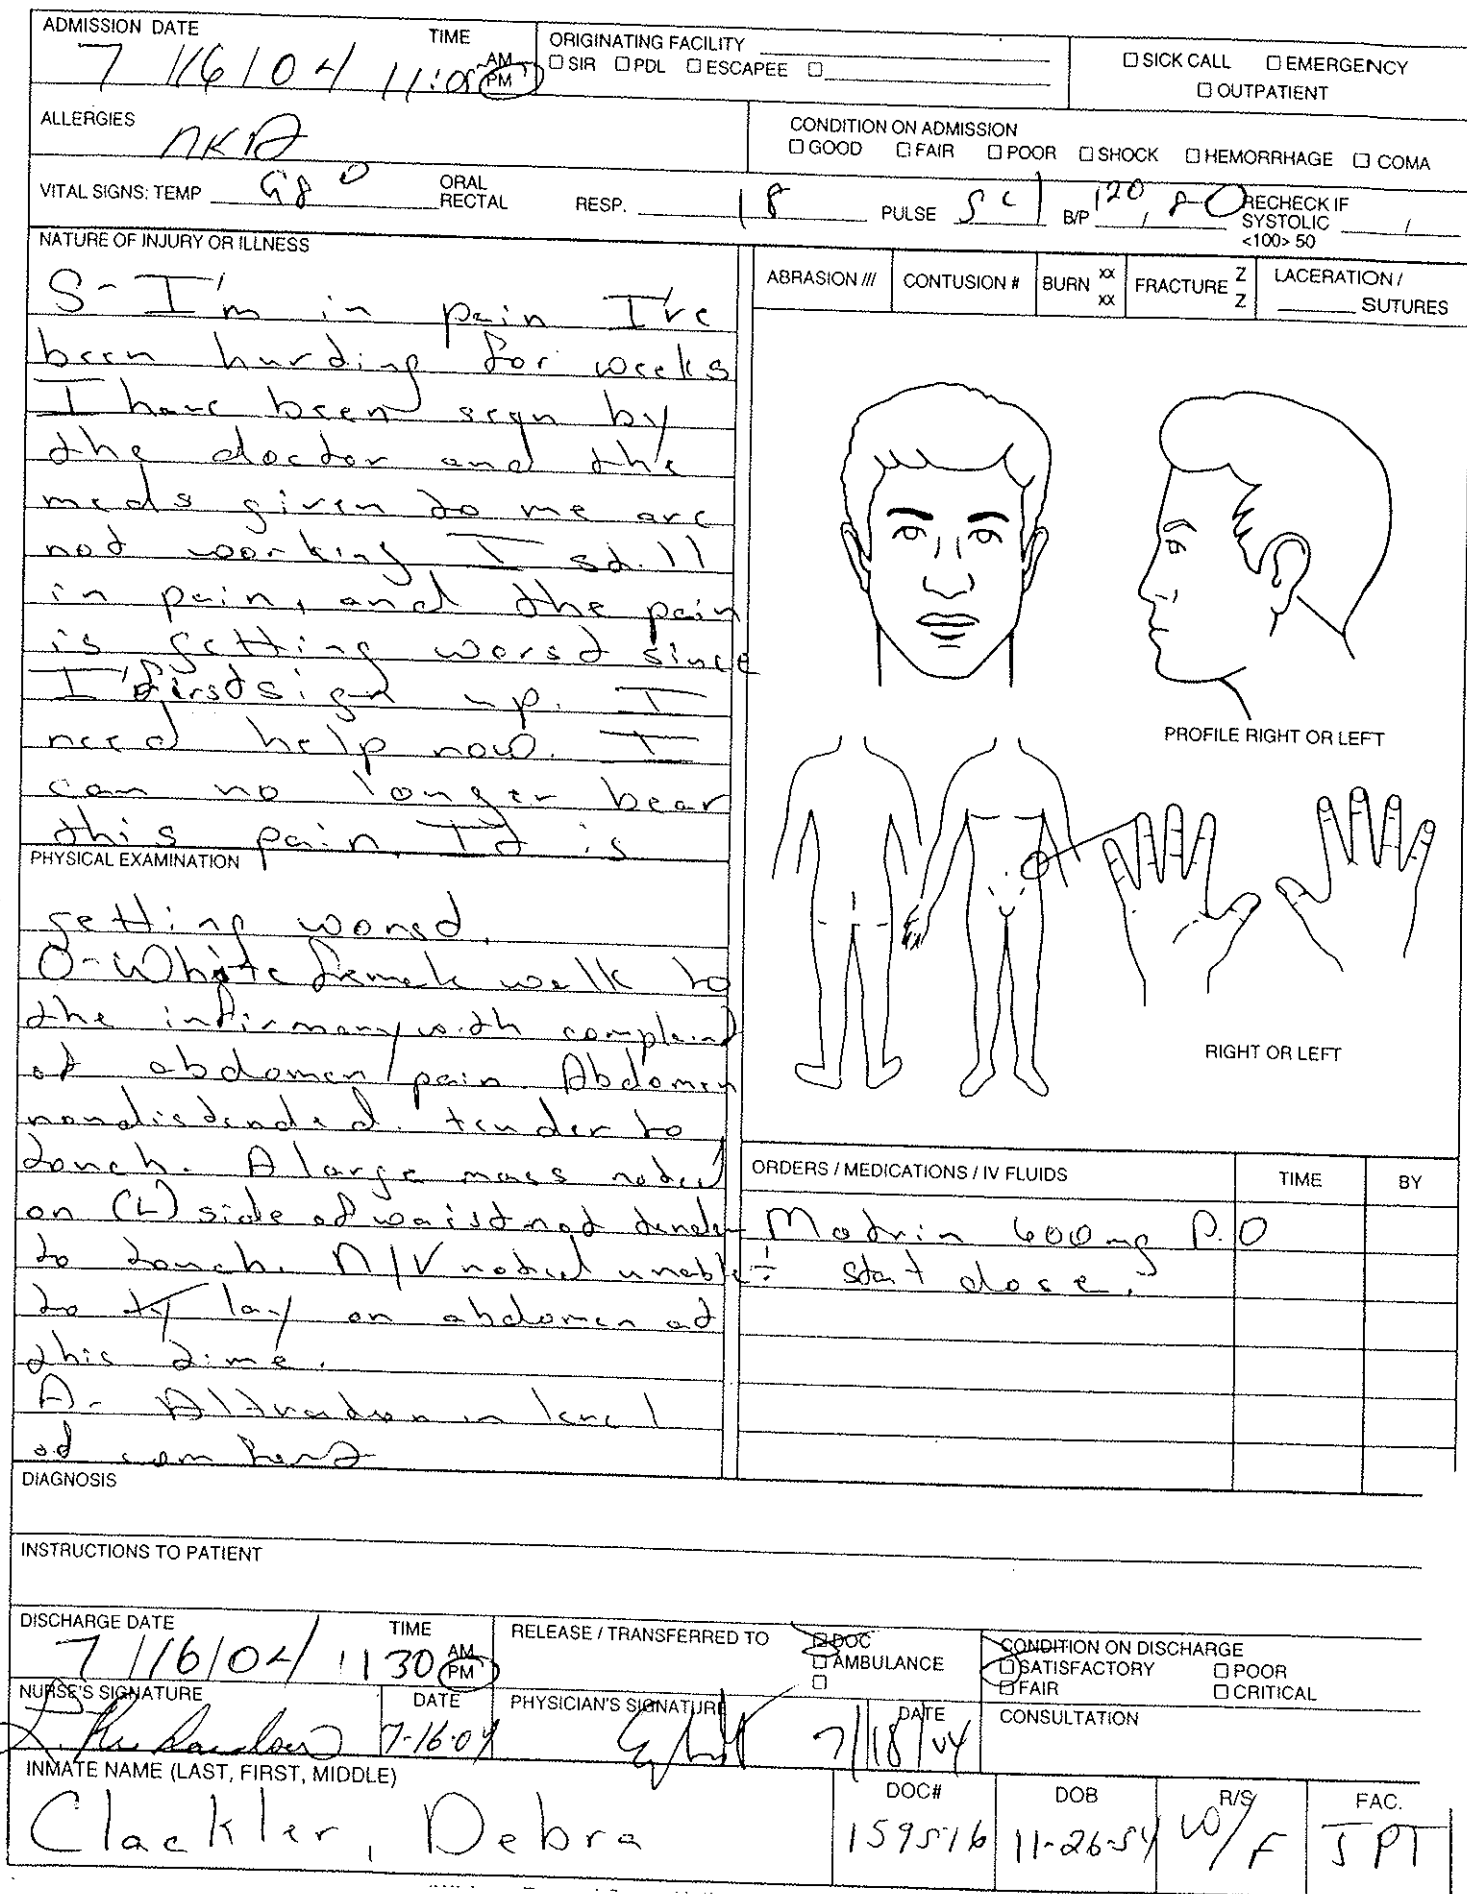 ADMISSION DATE TIME
7 /16/04 11:05 AM PM
ORIGINATING FACILITY
☐ SIR ☐ PDL ☐ ESCAPEE ☐
☐ SICK CALL ☐ EMERGENCY
☐ OUTPATIENT
ALLERGIES
NKA
CONDITION ON ADMISSION
☐ GOOD ☐ FAIR ☐ POOR ☐ SHOCK ☐ HEMORRHAGE ☐ COMA
VITAL SIGNS: TEMP 98 0 ORAL RECTAL RESP. 18 PULSE B/P 120 / 80 RECHECK IF SYSTOLIC <100> 50 /
NATURE OF INJURY OR ILLNESS
S- I'm in pain I've
been hurding for weeks
I have been seen by
the doctor and the
meds given to me are
not working I still
in pain, and the pain
is getting worst since
I first sign up. I
need help now. I
can no longer bear
this pain. It is
PHYSICAL EXAMINATION
getting worsd.
O- White female walk to
the infirmary with complaint
of abdomen/pain. Abdomen
nondistended. tender to
touch. A large mass noted
on (L) side of waist not tender
to touch. N/V noted unable
to lay on abdomen at
this time.
A- Altration in level
of comfort
ABRASION /// CONTUSION # BURN XX XX FRACTURE Z Z LACERATION / SUTURES
PROFILE RIGHT OR LEFT
RIGHT OR LEFT
ORDERS / MEDICATIONS / IV FLUIDS TIME BY
Motrin 600 mg P.O
stat dose.
DIAGNOSIS
INSTRUCTIONS TO PATIENT
DISCHARGE DATE TIME
7 /16/04 1130 AM PM
RELEASE / TRANSFERRED TO ☐ DOC
☐ AMBULANCE
☐
CONDITION ON DISCHARGE
☐ SATISFACTORY ☐ POOR
☐ FAIR ☐ CRITICAL
NURSE'S SIGNATURE DATE
7-16-04
PHYSICIAN'S SIGNATURE DATE
7/18/04
CONSULTATION
INMATE NAME (LAST, FIRST, MIDDLE)
Clackler, Debra
DOC#
159516
DOB
11-26-54
R/S
W/F
FAC.
JPT